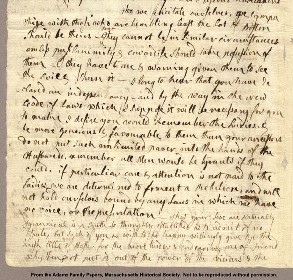 we felicitate ourselves, we sympa
thize with those who are trembling least the Lot of Boston
should be theirs. But they cannot be in Similar circumstances
unless pusilanimity & cowardise should take possession of
them. They have time & warning given them to see
the Evil & shun it. I long to hear that you have de
clared an independancy and by the way in the new
Code of Laws which I suppose it will be necessary for you
to make I desire you would Remember the Ladies, &
be more generous & favourable to them than your ancestors
do not put such unlimited power into the hands of the
Husbands. Remember all Men would be tyrants if they
could. if perticuliar care & attention is not paid to the
Ladies we are determined to foment a Rebelion, and will
not hold ourselves bound by any Laws in which we have
no voice, or Representation
That your Sex are Naturally
Tyrannical is a Truth so thoroughly established as to admit of no
dispute, but such of you as wish to be happy willingly give up the
harsh title of Master for the more tender & endearing one of Friend
Why then, not put it out of the power of the vicious & the
From the Adams Family Papers, Massachusetts Historical Society. Not to be reproduced without permission.